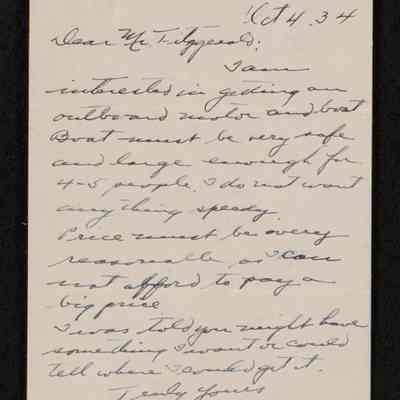 Oct 4. 34
Dear Mr. Fitzgerald:
I am
interested in getting an
outboard motor and boat
Boat must be very safe
and large enough for
4-5 people. I do not want
anything speedy
Price must be very
reasonable as I can
not afford to pay a
big price
I was told you might have
something I want or could
tell where I could get it.
Truly Yours